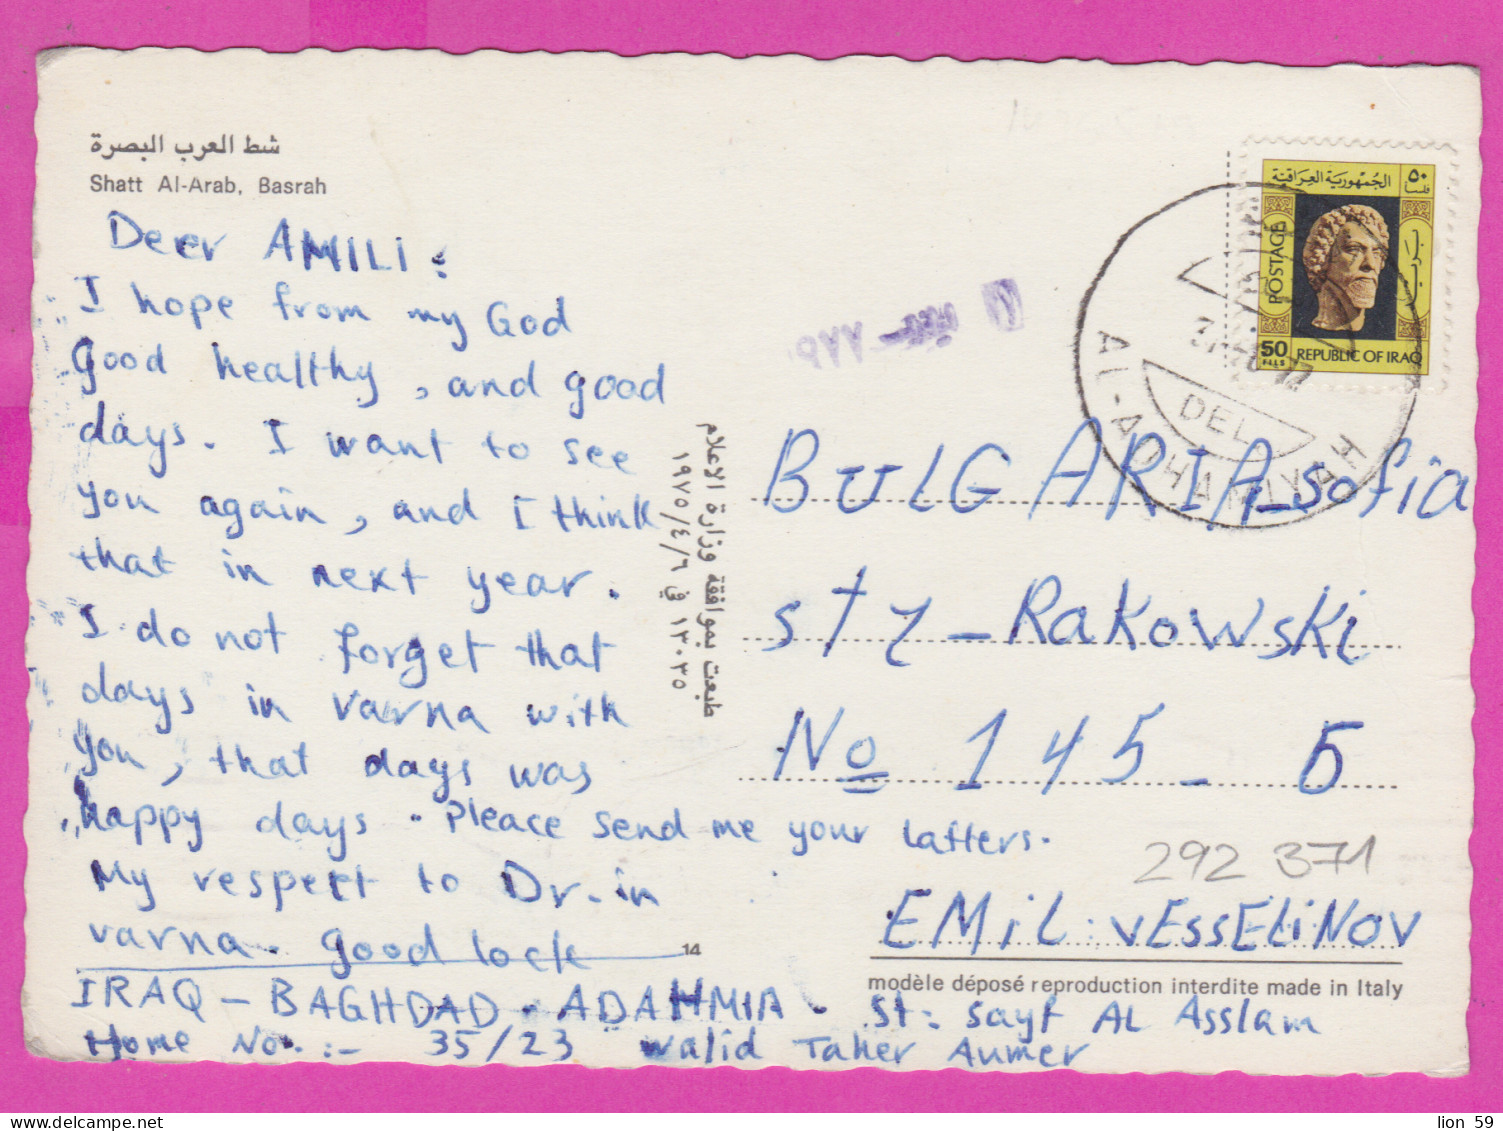 شط العرب البصرة
Shatt Al-Arab, Basrah
Deer AMILI:
I hope from my God
good healthy, and good
days. I want to see
you again, and I think
that in next year.
I do not forget that
days in varna with
you, that days was
happy days. Pleace send me your latters.
My respect to Dr. in
varna. good lock
IRAQ - BAGHDAD - ADAHMIA - st: sayf AL Asslam
Home No. :- 35/23 walid Taher Aumer
14
طبعت بموافقة وزارة الاعلام
١٣٠٣٥ في ١٩٧٥/٤/٦
الجمهورية العراقية
٥٠
فلسا
POSTAGE
بريد
50
FILS
REPUBLIC OF IRAQ
AL-ADHAMIYAH
DEL
BULGARIA_Sofia
st7 - Rakowski
No 145 - 5
292 371
EMiL: vEssELiNOV
modèle déposé reproduction interdite made in Italy
lion 59